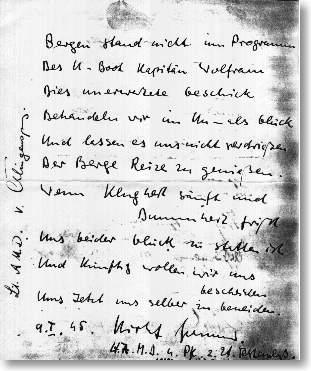 Bergen stand nicht im Programm
Des U-Boot Kapitän Wolfram
Dies unerwartete Geschick
Behandeln wir im Un- als Glück
Und lassen es uns nicht verdrießen
Der Berge Reize zu genießen.
Wenn Klugheit säuft und
Dummheit frißt
Uns beider Glück zu stellen ist
Und künftig wollen wir uns
bescheiden
Uns Jetzt uns selber zu beneiden.
9. I. 45.